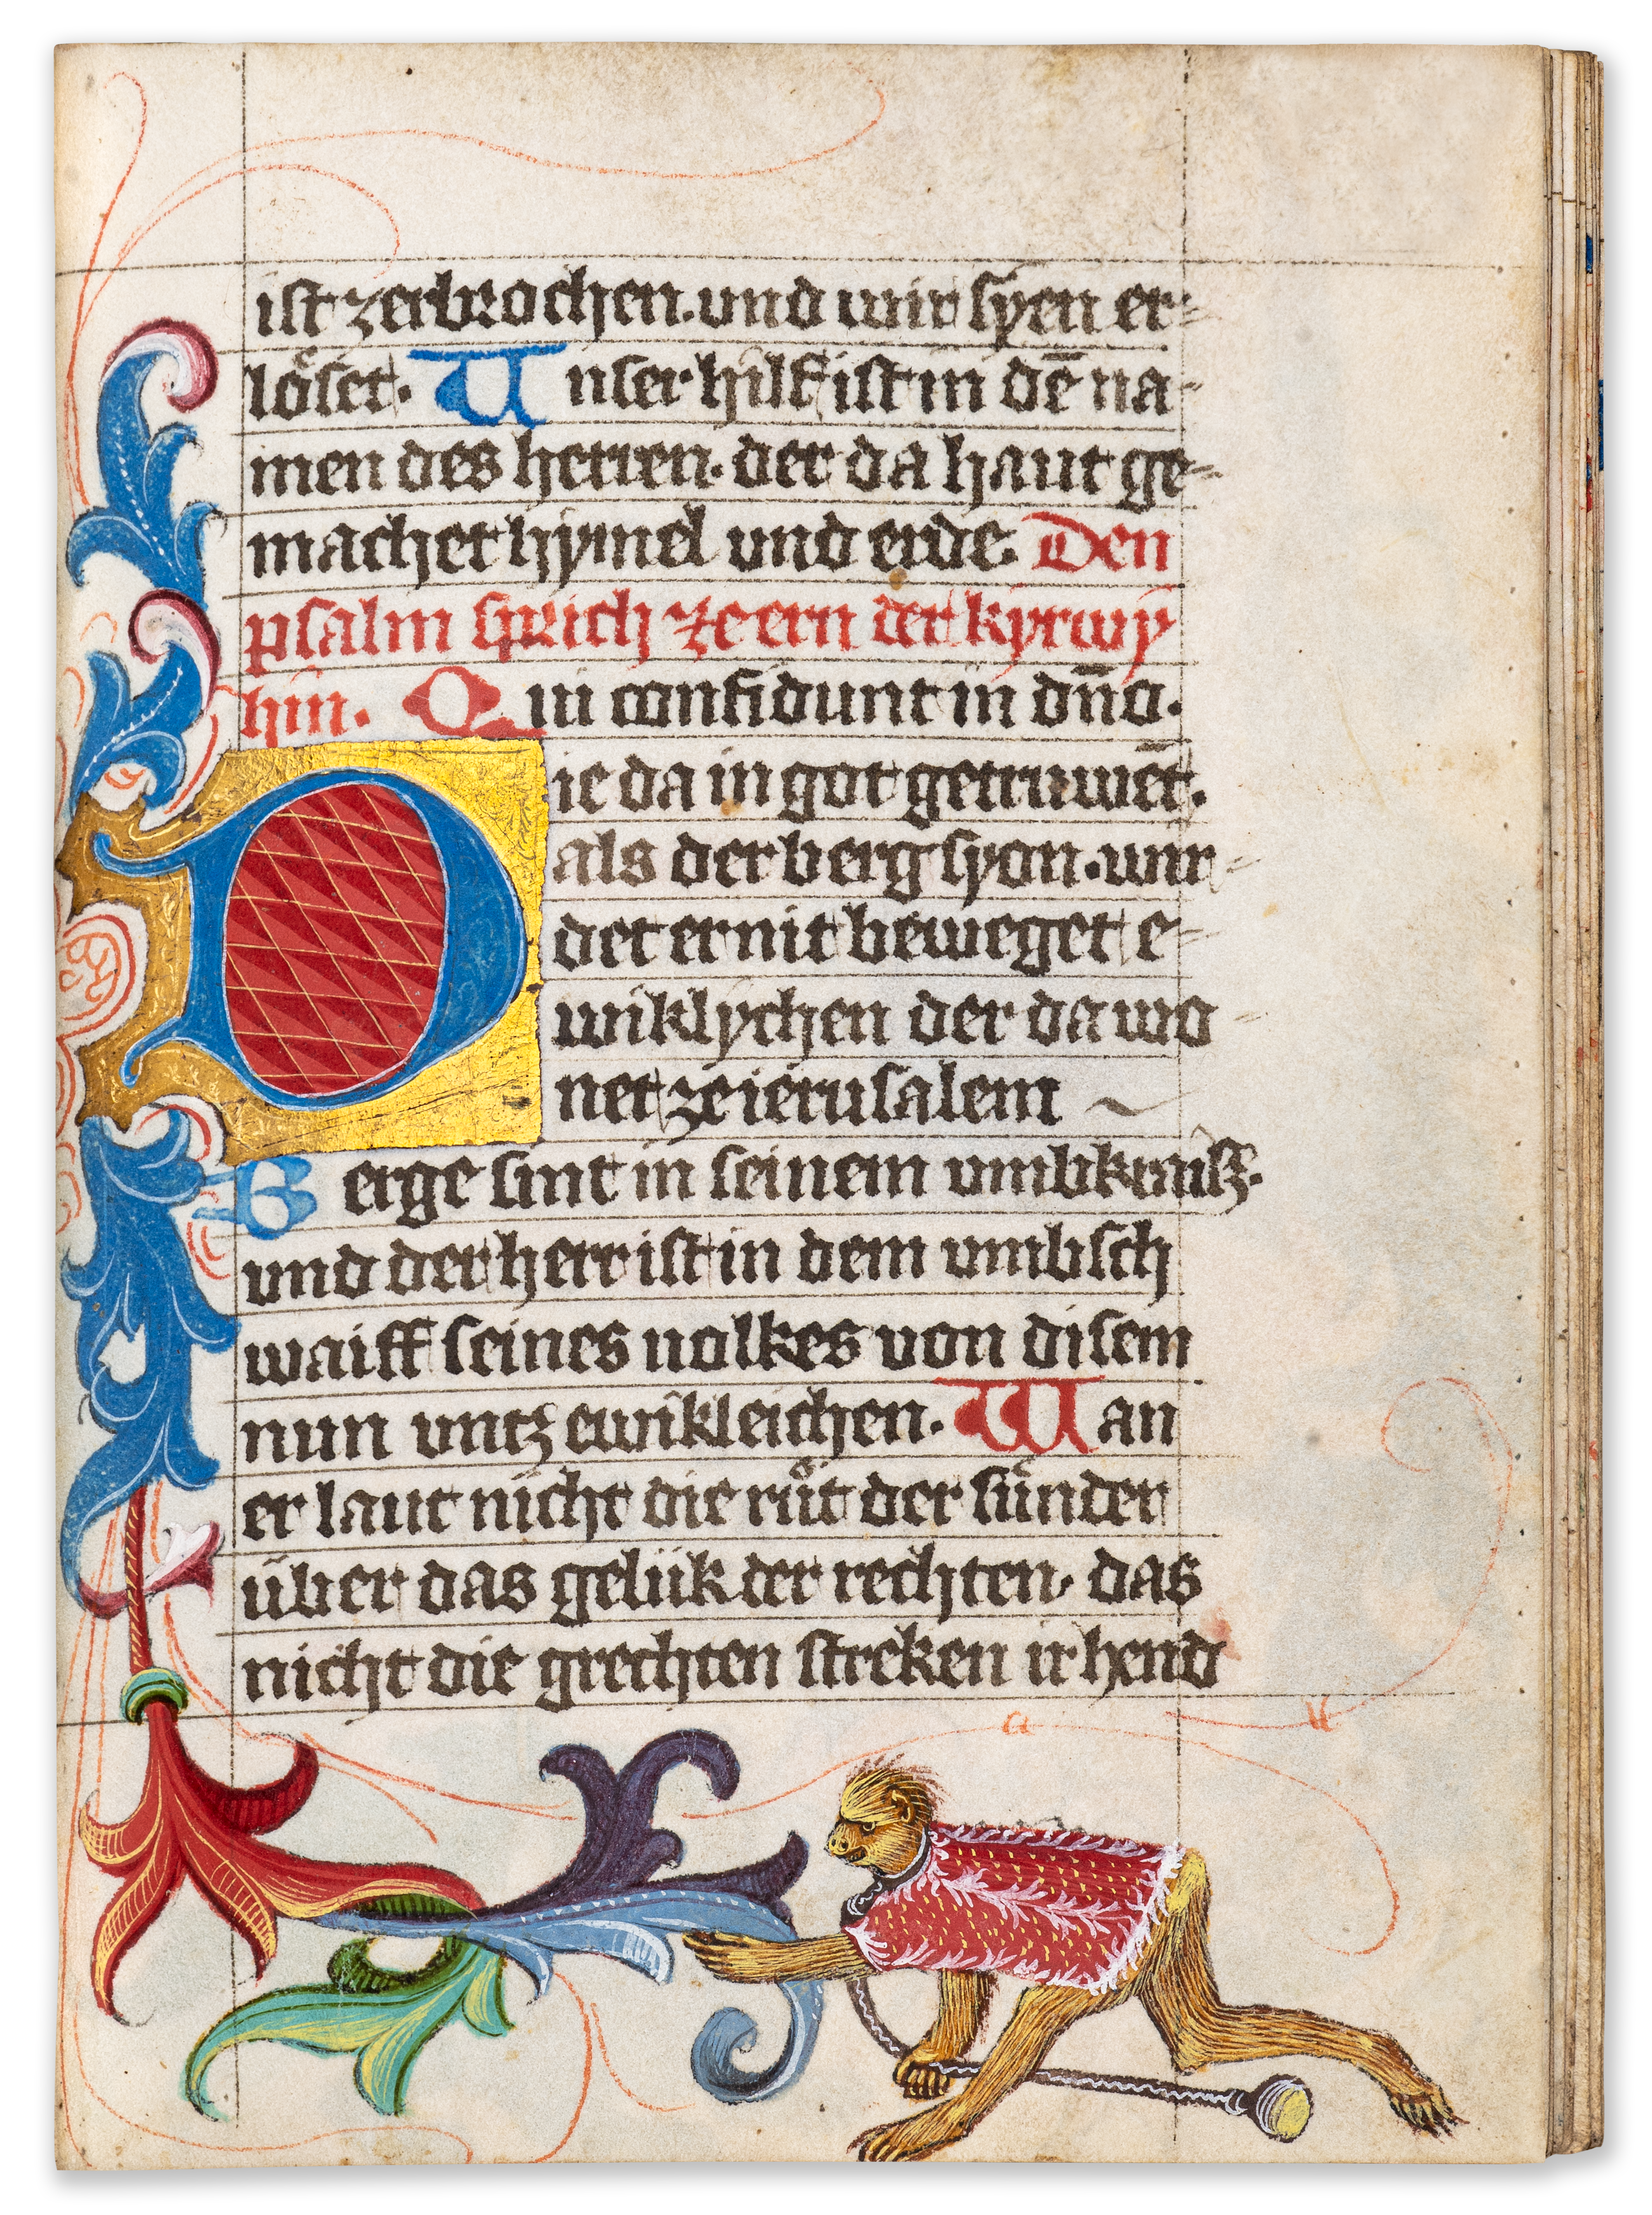 ist zerbrochen. und wir syen er-
löset. Unser hilf ist in dē na-
men des herren. der da haut ge-
machet hymel und erde. Den
psalm sprich ze ern der kyrwy
hin. Qui confidunt in dn̄o.
Die da in got getruwēt.
als der berg syon. wir-
det er nit beweget e-
wiklychen der da wo-
net ze ierusalem
Berge sint in seinem umbkraisz.
und der herr ist in dem umbsch
waiff seines uolkes von disem
nun untz ewikleichen. Wan
er laut nicht die růt der sünder
über das gelük der rechten. das
nicht die grechten streken ir hend